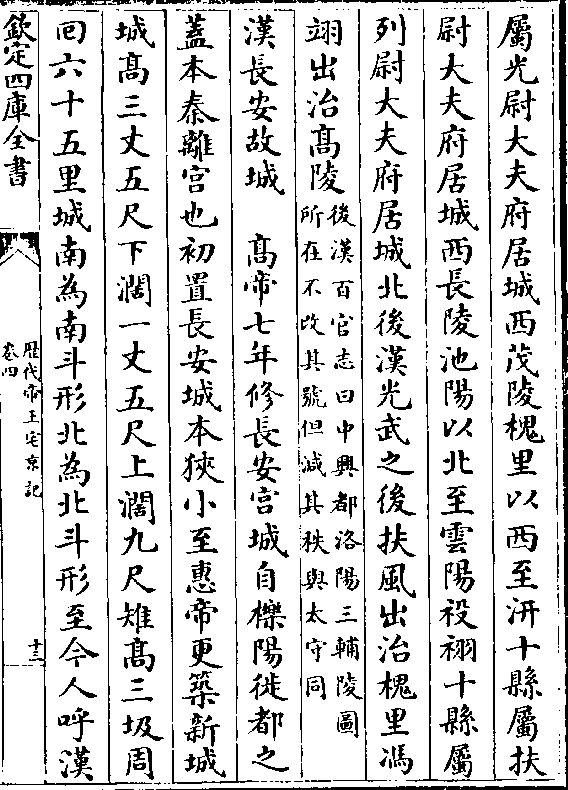 屬光尉大夫府居城西茂陵槐里以西至汧十縣屬扶
尉大夫府居城西長陵池陽以北至雲陽祋祤十縣屬
列尉大夫府居城北後漢光武之後扶風出治槐里馮
翊出治髙陵後漢百官志曰中興都洛陽三輔陵圖
所在不改其號但減其秩與太守同
漢長安故城　髙帝七年修長安宫城自櫟陽徙都之
蓋本秦離宫也初置長安城本狹小至惠帝更築新城
城髙三丈五尺下濶一丈五尺上濶九尺雉髙三坂周
回六十五里城南為南斗形北為北斗形至今人呼漢
欽定四庫全書
歴代帝王宅京記
卷四
十三